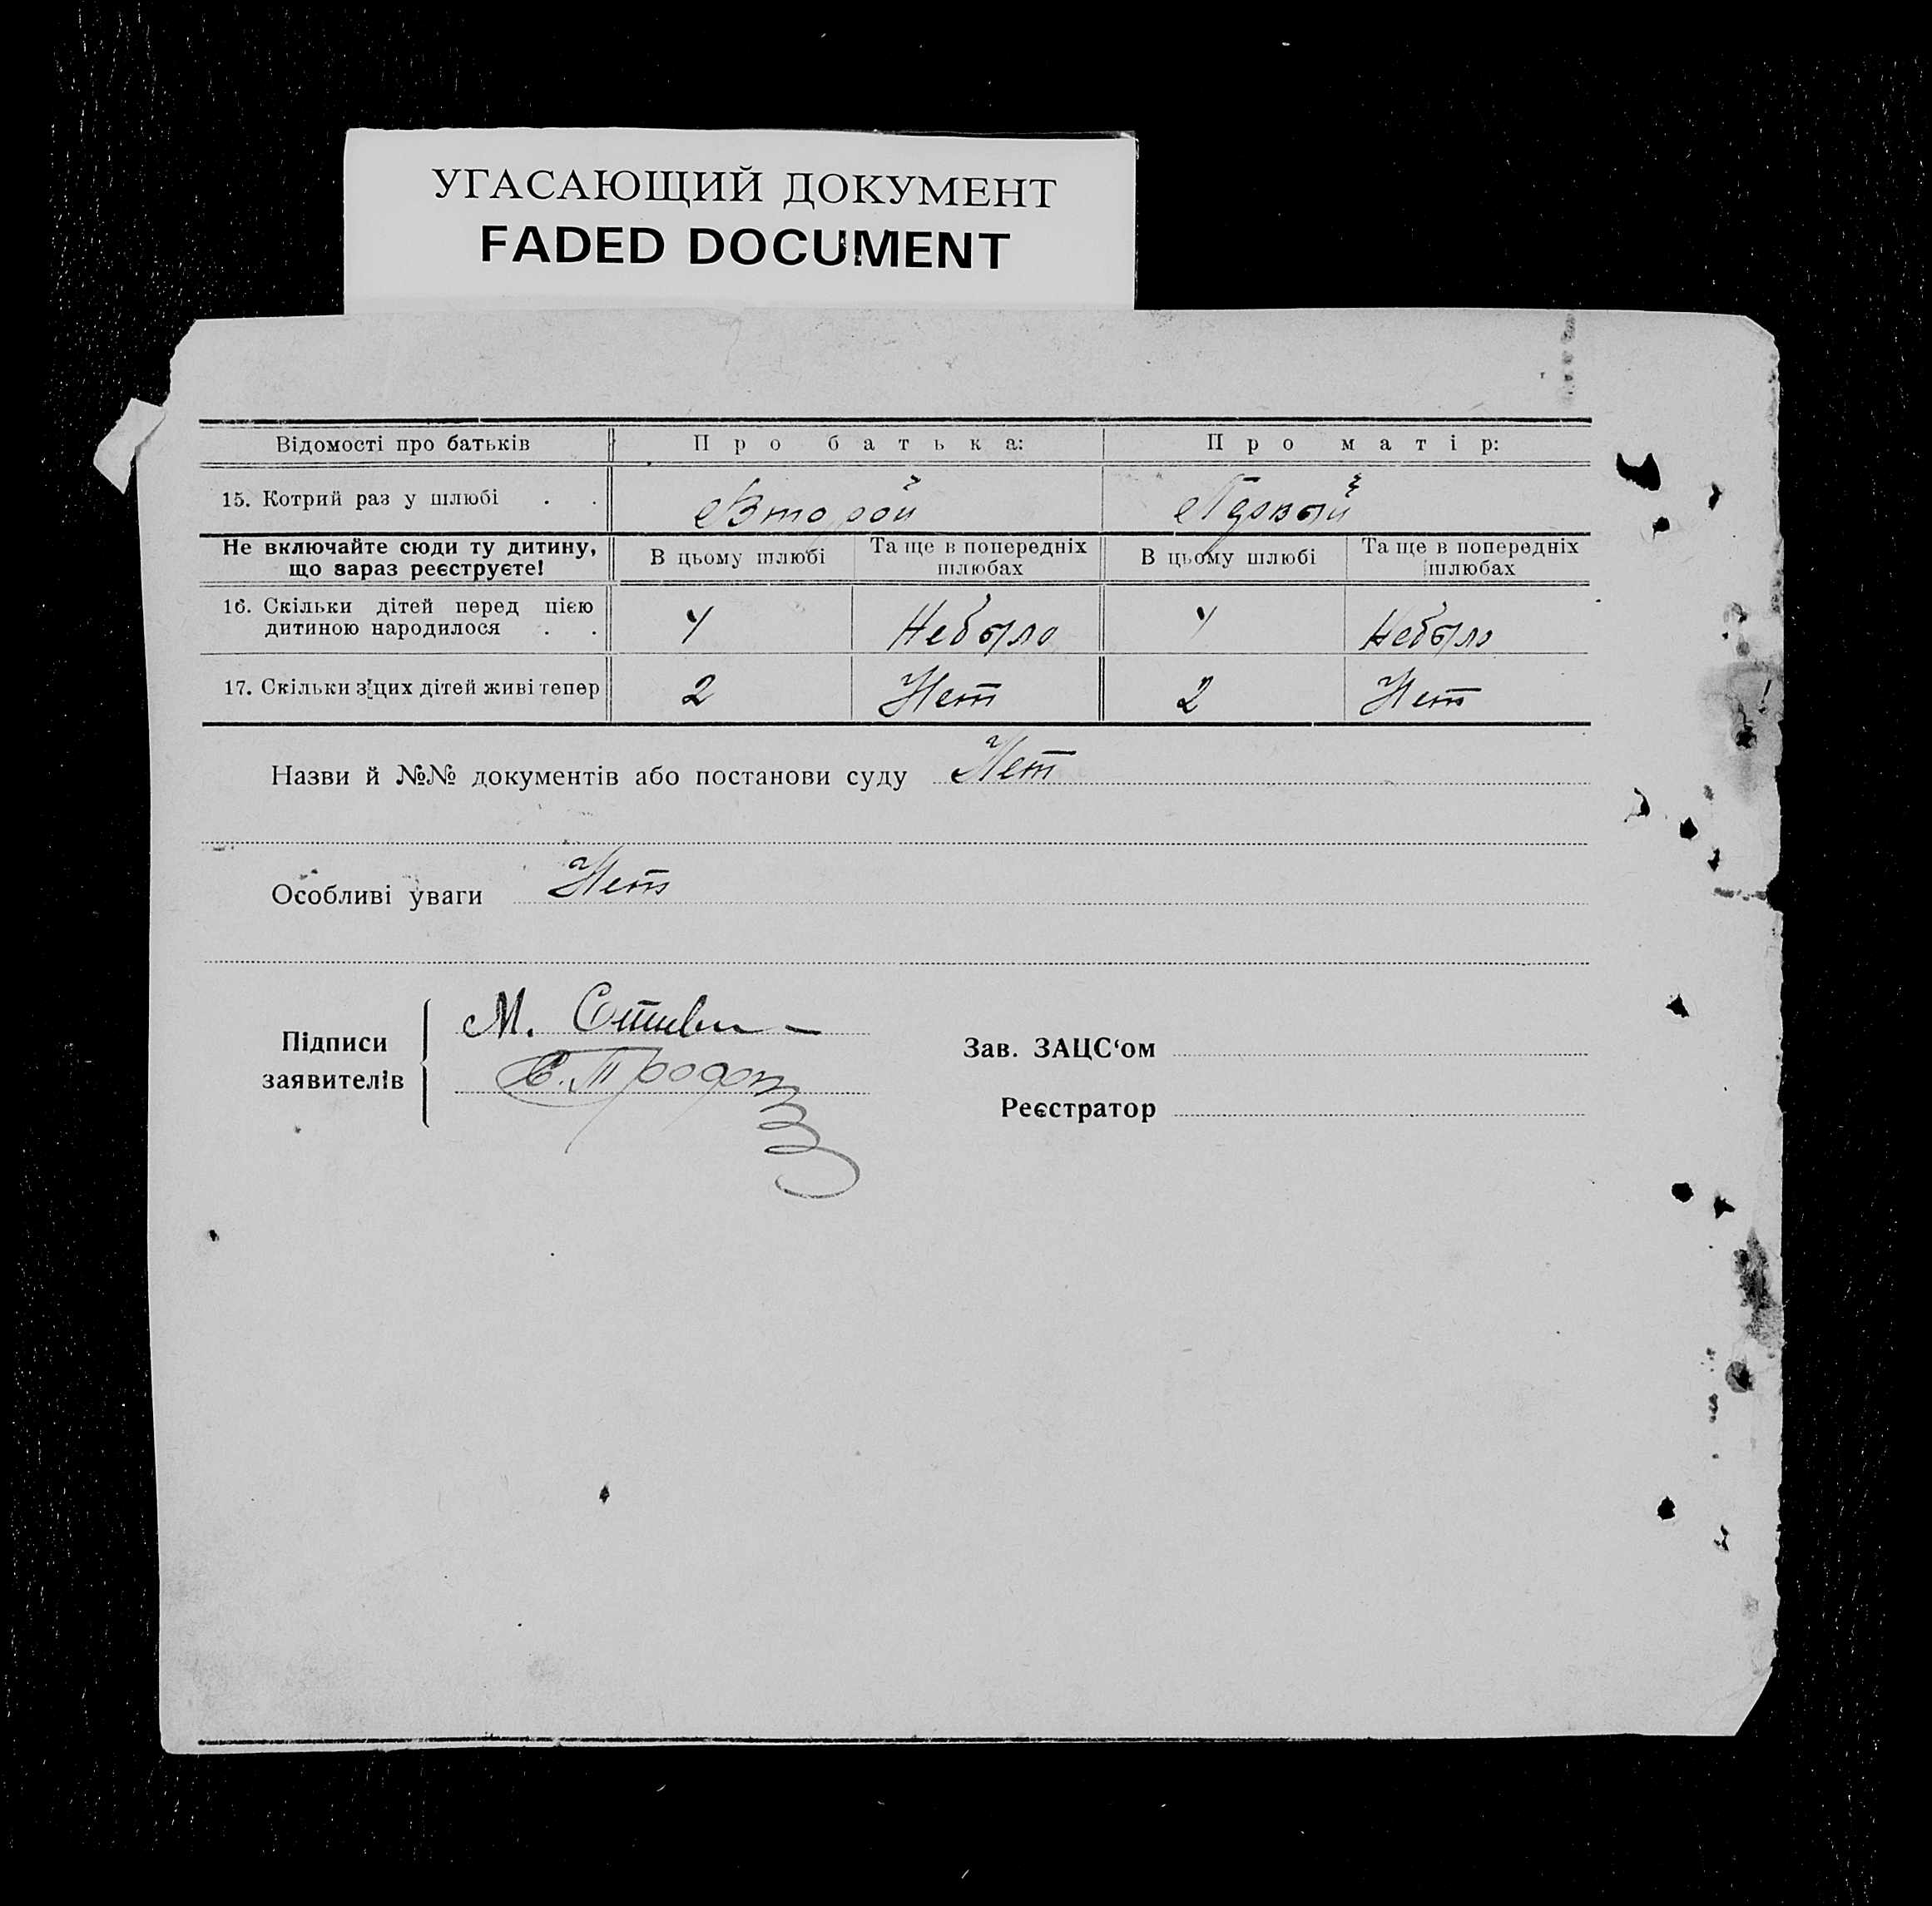 УГАСАЮЩИЙ ДОКУМЕНТ
FADED DOCUMENT
Відомості про батьків Про батька: Про матір:
15. Котрий раз у шлюбі . . Второй Первый
Не включайте сюди ту дитину, що зараз реєструєте! В цьому шлюбі Та ще в попередніх шлюбах В цьому шлюбі Та ще в попередніх шлюбах
16. Скільки дітей перед цією
дитиною народилося . . 4 Небыло 4 Небыло
17. Скільки з цих дітей живі тепер 2 Нет 2 Нет
Назви й №№ документів або постанови суду Нет
Особливі уваги Нет
Підписи
заявителів
М.
Зав. ЗАЦС‘ом
Реєстратор